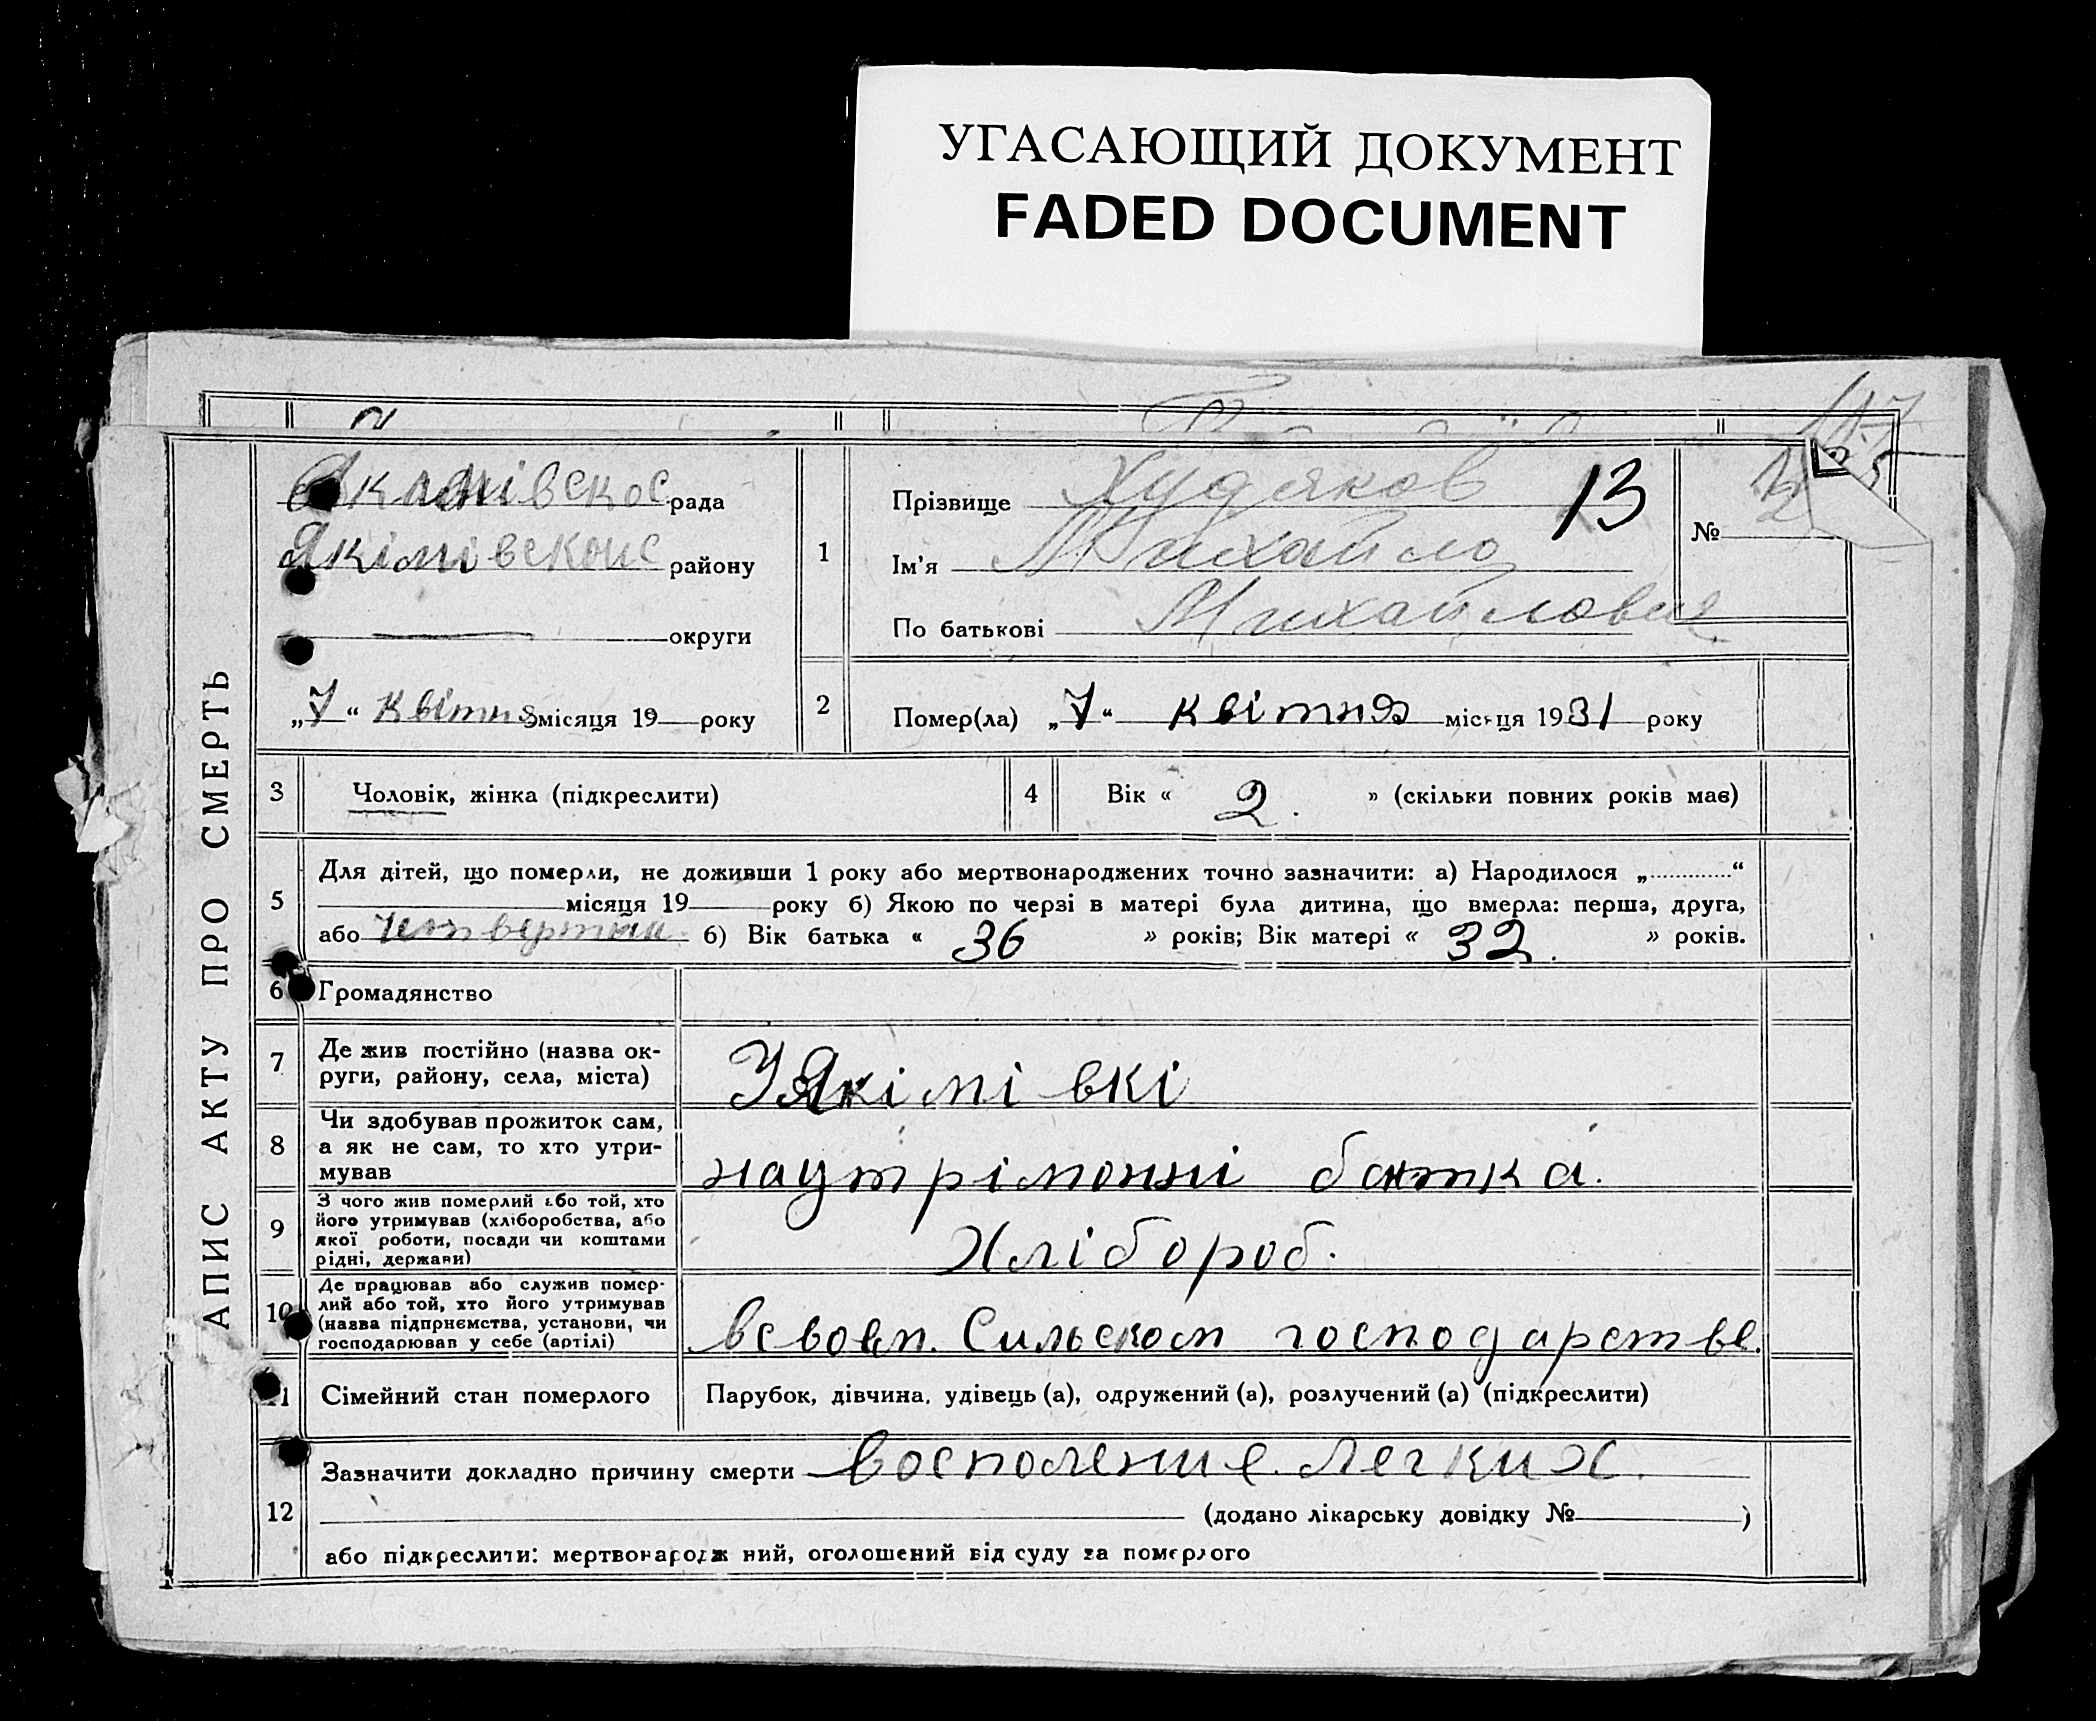 УГАСАЮЩИЙ ДОКУМЕНТ
FADED DOCUMENT
АПИС АКТУ ПРО СМЕРТЬ
рада
Якімівскоіс району
округи
„7“ Квітня місяця 19 року
1
Прізвище Худяков
13
Ім'я Михайло
По батькові Михайлович
№
2
Помер(ла) „7“ квітня місяця 1931 року
3 Чоловік, жінка (підкреслити)
4 Вік « 2. » (скільки повних років має)
5
Для дітей, що померли, не доживши 1 року або мертвонароджених точно зазначити: а) Народилося „ “
місяця 19 року б) Якою по черзі в матері була дитина, що вмерла: перша, друга,
або четвертая б) Вік батька « 36 » років; Вік матері « 32. » років.
6 Громадянство
7
Де жив постійно (назва ок-
руги, району, села, міста)
У Якімівкі
8
Чи здобував прожиток сам,
а як не сам, то хто утри-
мував
наутрімонні батка.
9
З чого жив померлий або той, хто
його утримував (хліборобства, або
якої роботи, посади чи коштами
рідні, держави)
Хлібороб.
10
Де працював або служив помер-
лий або той, хто його утримував
(назва підприємства, установи, чи
господарював у себе (артілі)
Сильском господарстве.
11 Сімейний стан померлого
Парубок, дівчина, удівець (а), одружений (а), розлучений (а) (підкреслити)
12
Зазначити докладно причину смерти Восполение легких.
(додано лікарську довідку № )
або підкреслити: мертвонародж ний, оголошений від суду за померлого